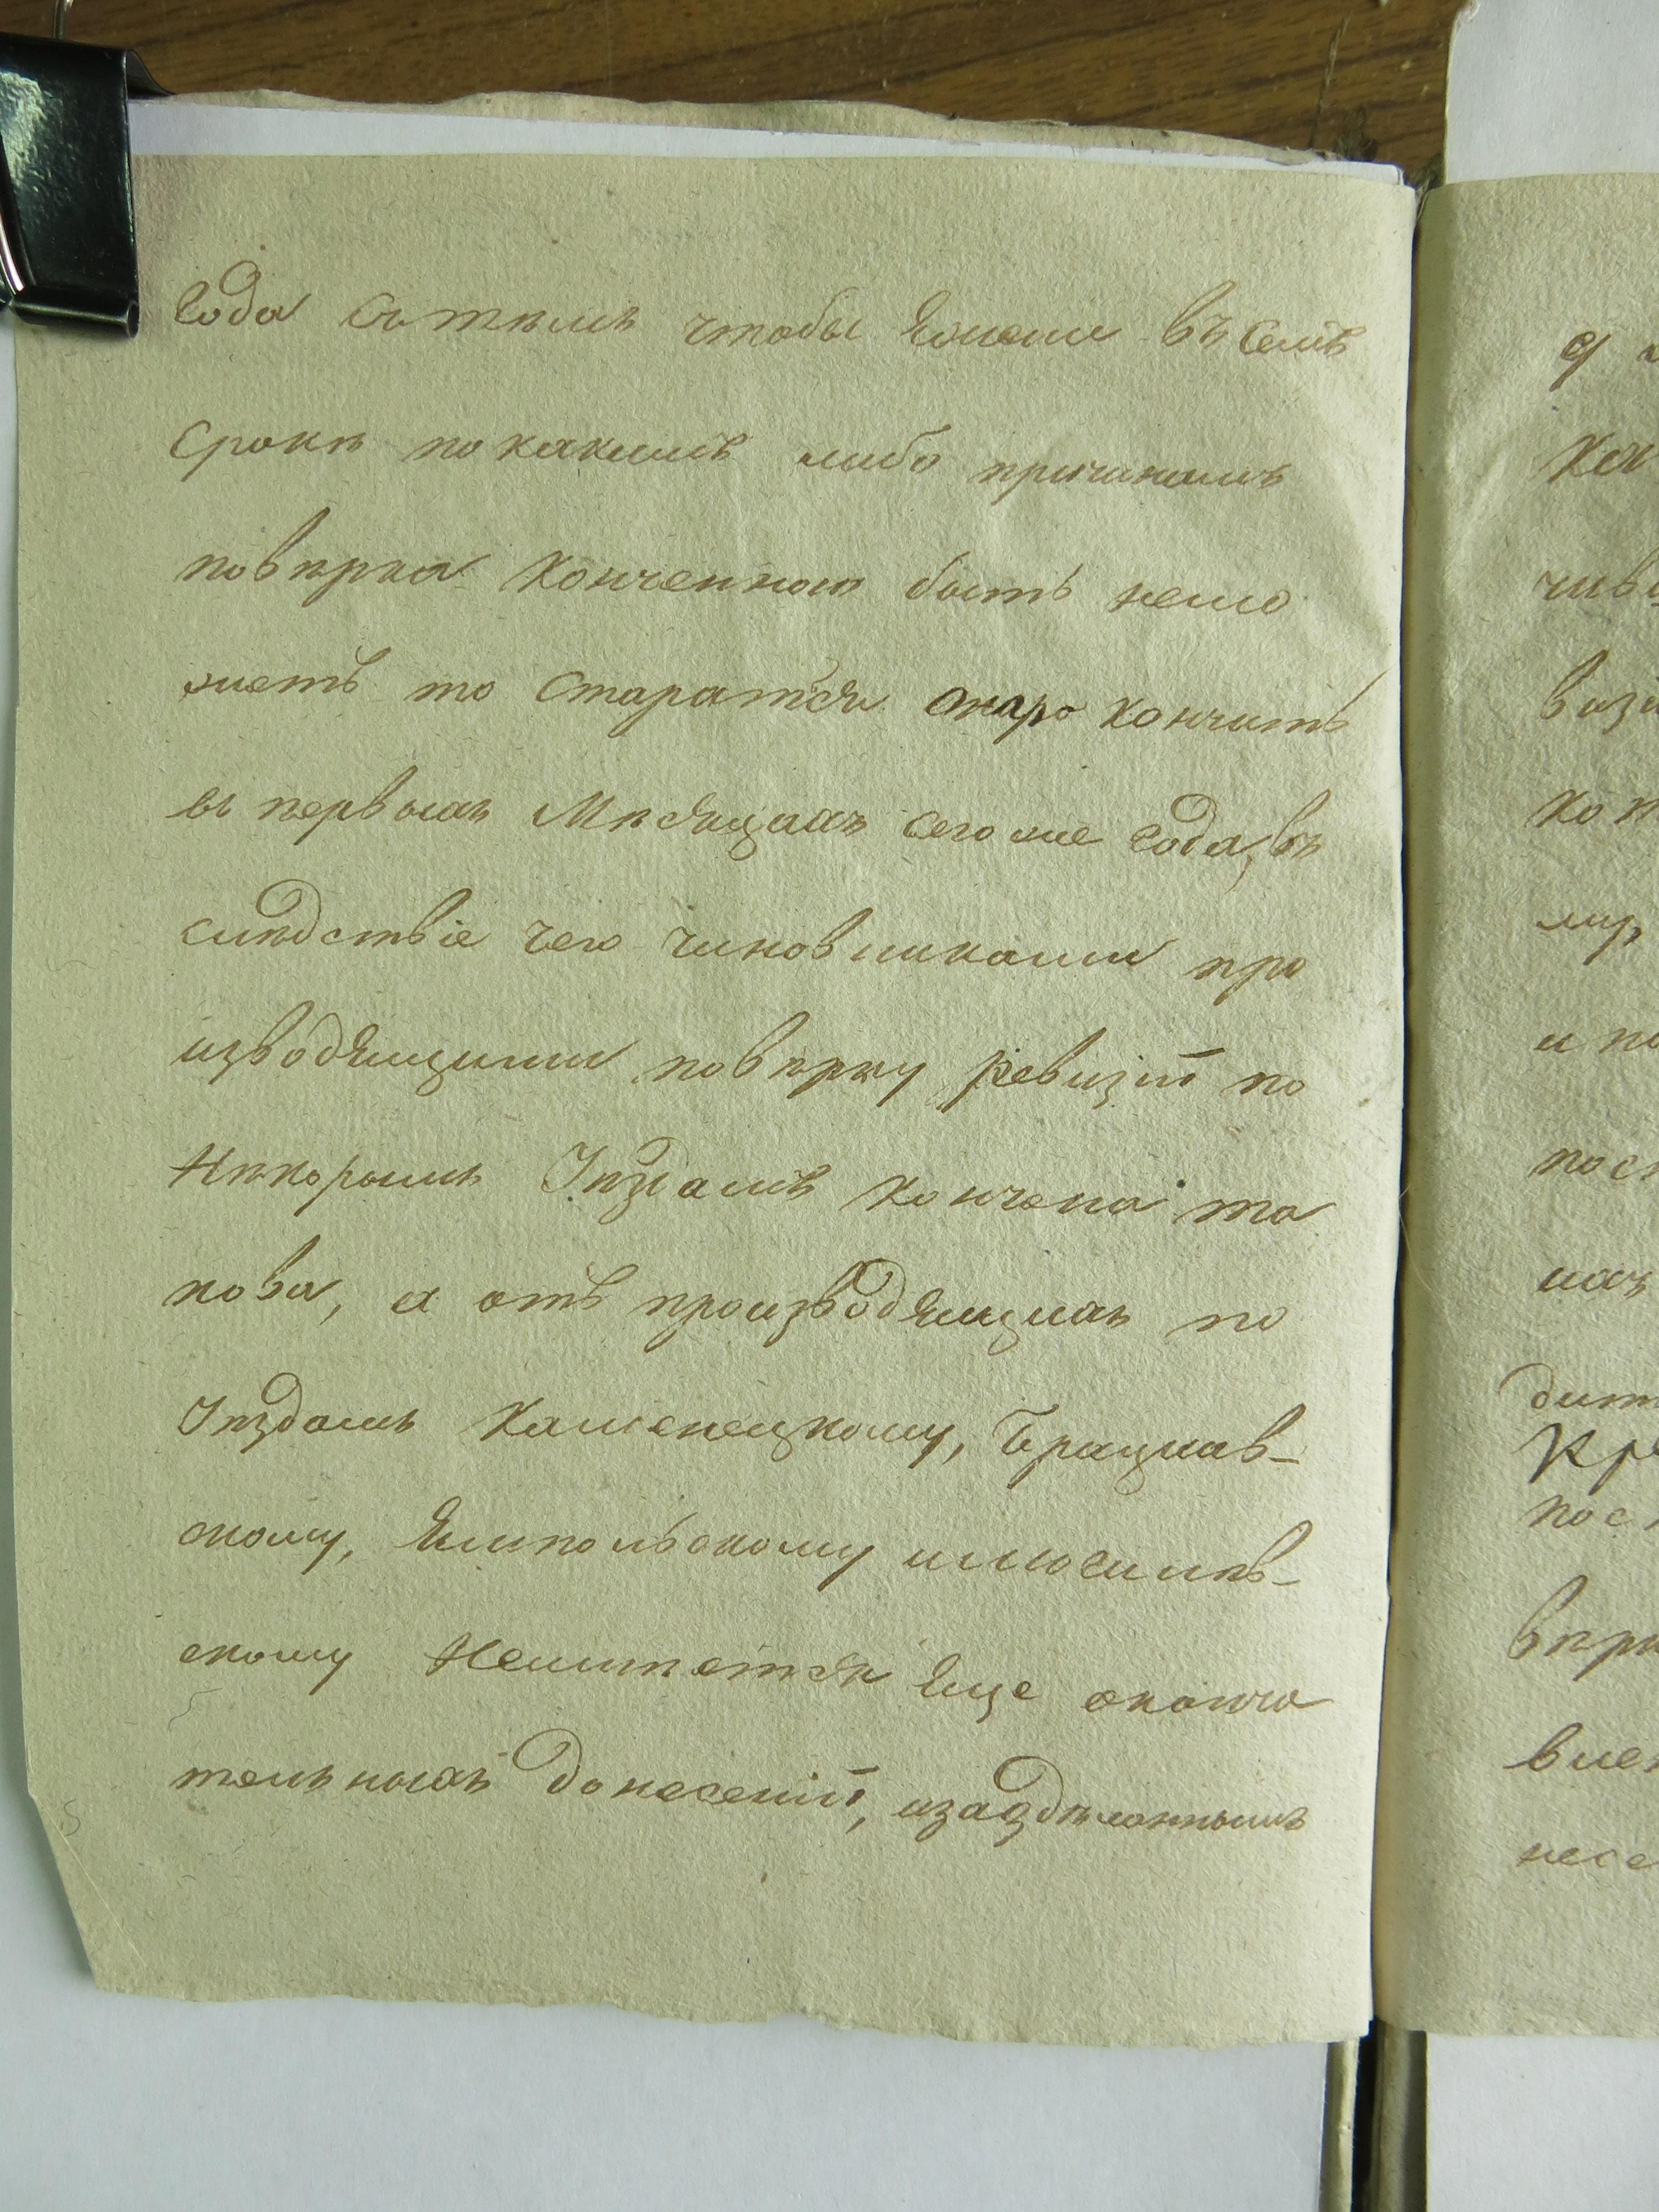 года съ тѣмъ чтобы ежели въ семъ
срокѣ по какимъ либо причинамъ
повѣрка конченною быть немо
жетъ то старатся скоро кончить
въ первыхъ Мѣсяцахъ сего же года, въ
слѣдствіе чего чиновниками про
изводящими повѣрку ревизіи по
Нѣкорымъ Уѣздамъ кончена та
кова, а отъ производящихъ по
Уѣздамъ Каменецкому, Брацлав-
скому, Ямпольскому и
скому Неимѣется еще оконча
тельныхъ донесеній,
а
ка
чив
визі
ко
му,
и по
посл
нач
дит
Кре
посл
вѣрк
влен
несе